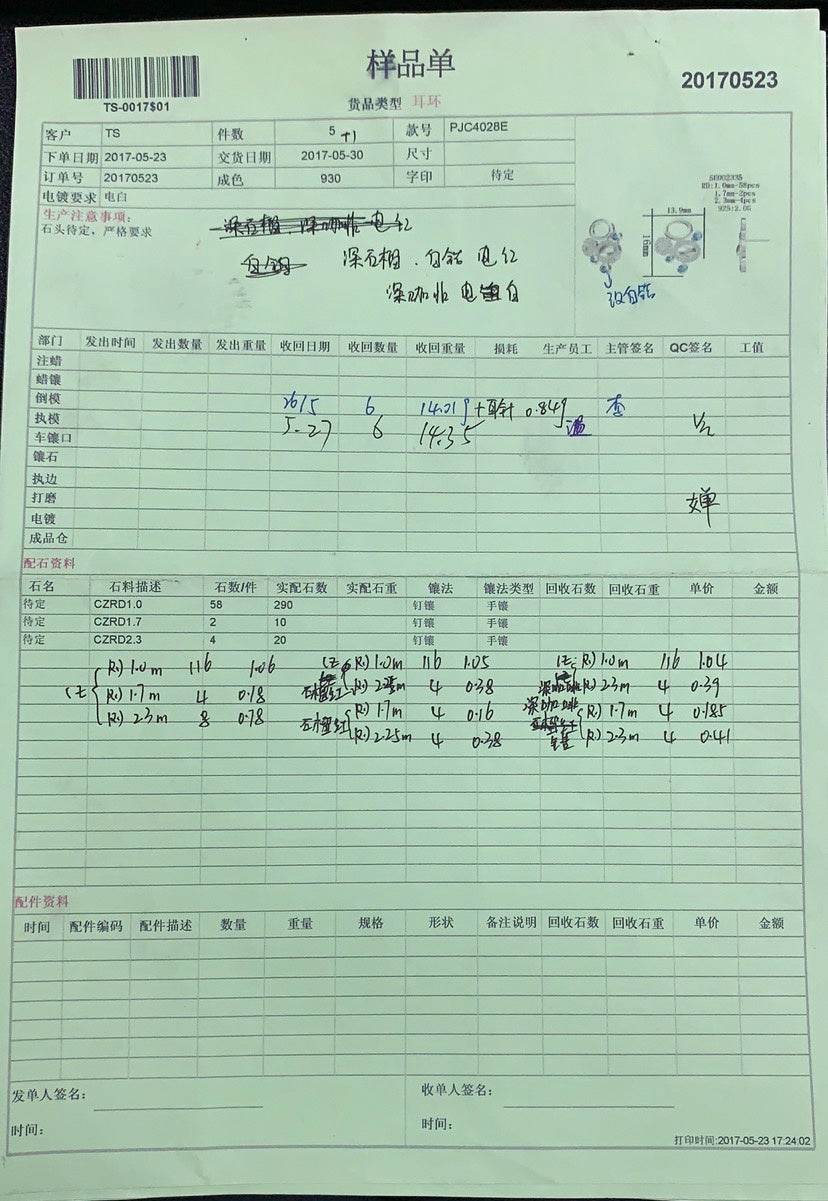 样品单
20170523
TS-0017$01
货品类型 耳环
客户 TS 件数 5 +1 款号 PJC4028E
下单日期 2017-05-23 交货日期 2017-05-30 尺寸
订单号 20170523 成色 930 字印 待定
电镀要求 电白
生产注意事项:
石头待定，严格要求
深石榴、白钻 电红
深咖啡 电白
SE002335
RD:1.0mm-58pcs
1.7mm-2pcs
2.3mm-4pcs
925:2.0G
13.9mm
16mm
改白钻
部门 发出时间 发出数量 发出重量 收回日期 收回数量 收回重量 损耗 生产员工 主管签名 QC签名 工值
注蜡
蜡镶
倒模 26/5 6 14.01g +耳针 0.84g 李
执模 5.27 6 14.35
车镶口
镶石
执边
打磨
电镀
成品仓
配石资料
石名 石料描述 石数/件 实配石数 实配石重 镶法 镶法类型 回收石数 回收石重 单价 金额
待定 CZRD1.0 58 290 钉镶 手镶
待定 CZRD1.7 2 10 钉镶 手镶
待定 CZRD2.3 4 20 钉镶 手镶
R) 1.0m 116 1.06 R) 1.0m 116 1.05 R) 1.0m 116 1.04
R) 1.7m 4 0.18 4 0.38 R) 2.3m 4 0.39
R) 2.3m 8 0.78 石榴红 R) 1.7m 4 0.16 深咖啡 R) 1.7m 4 0.185
R) 2.25m 4 0.38 R) 2.3m 4 0.41
配件资料
时间 配件编码 配件描述 数量 重量 规格 形状 备注说明 回收石数 回收石重 单价 金额
发单人签名: 收单人签名:
时间: 时间:
打印时间:2017-05-23 17:24:02